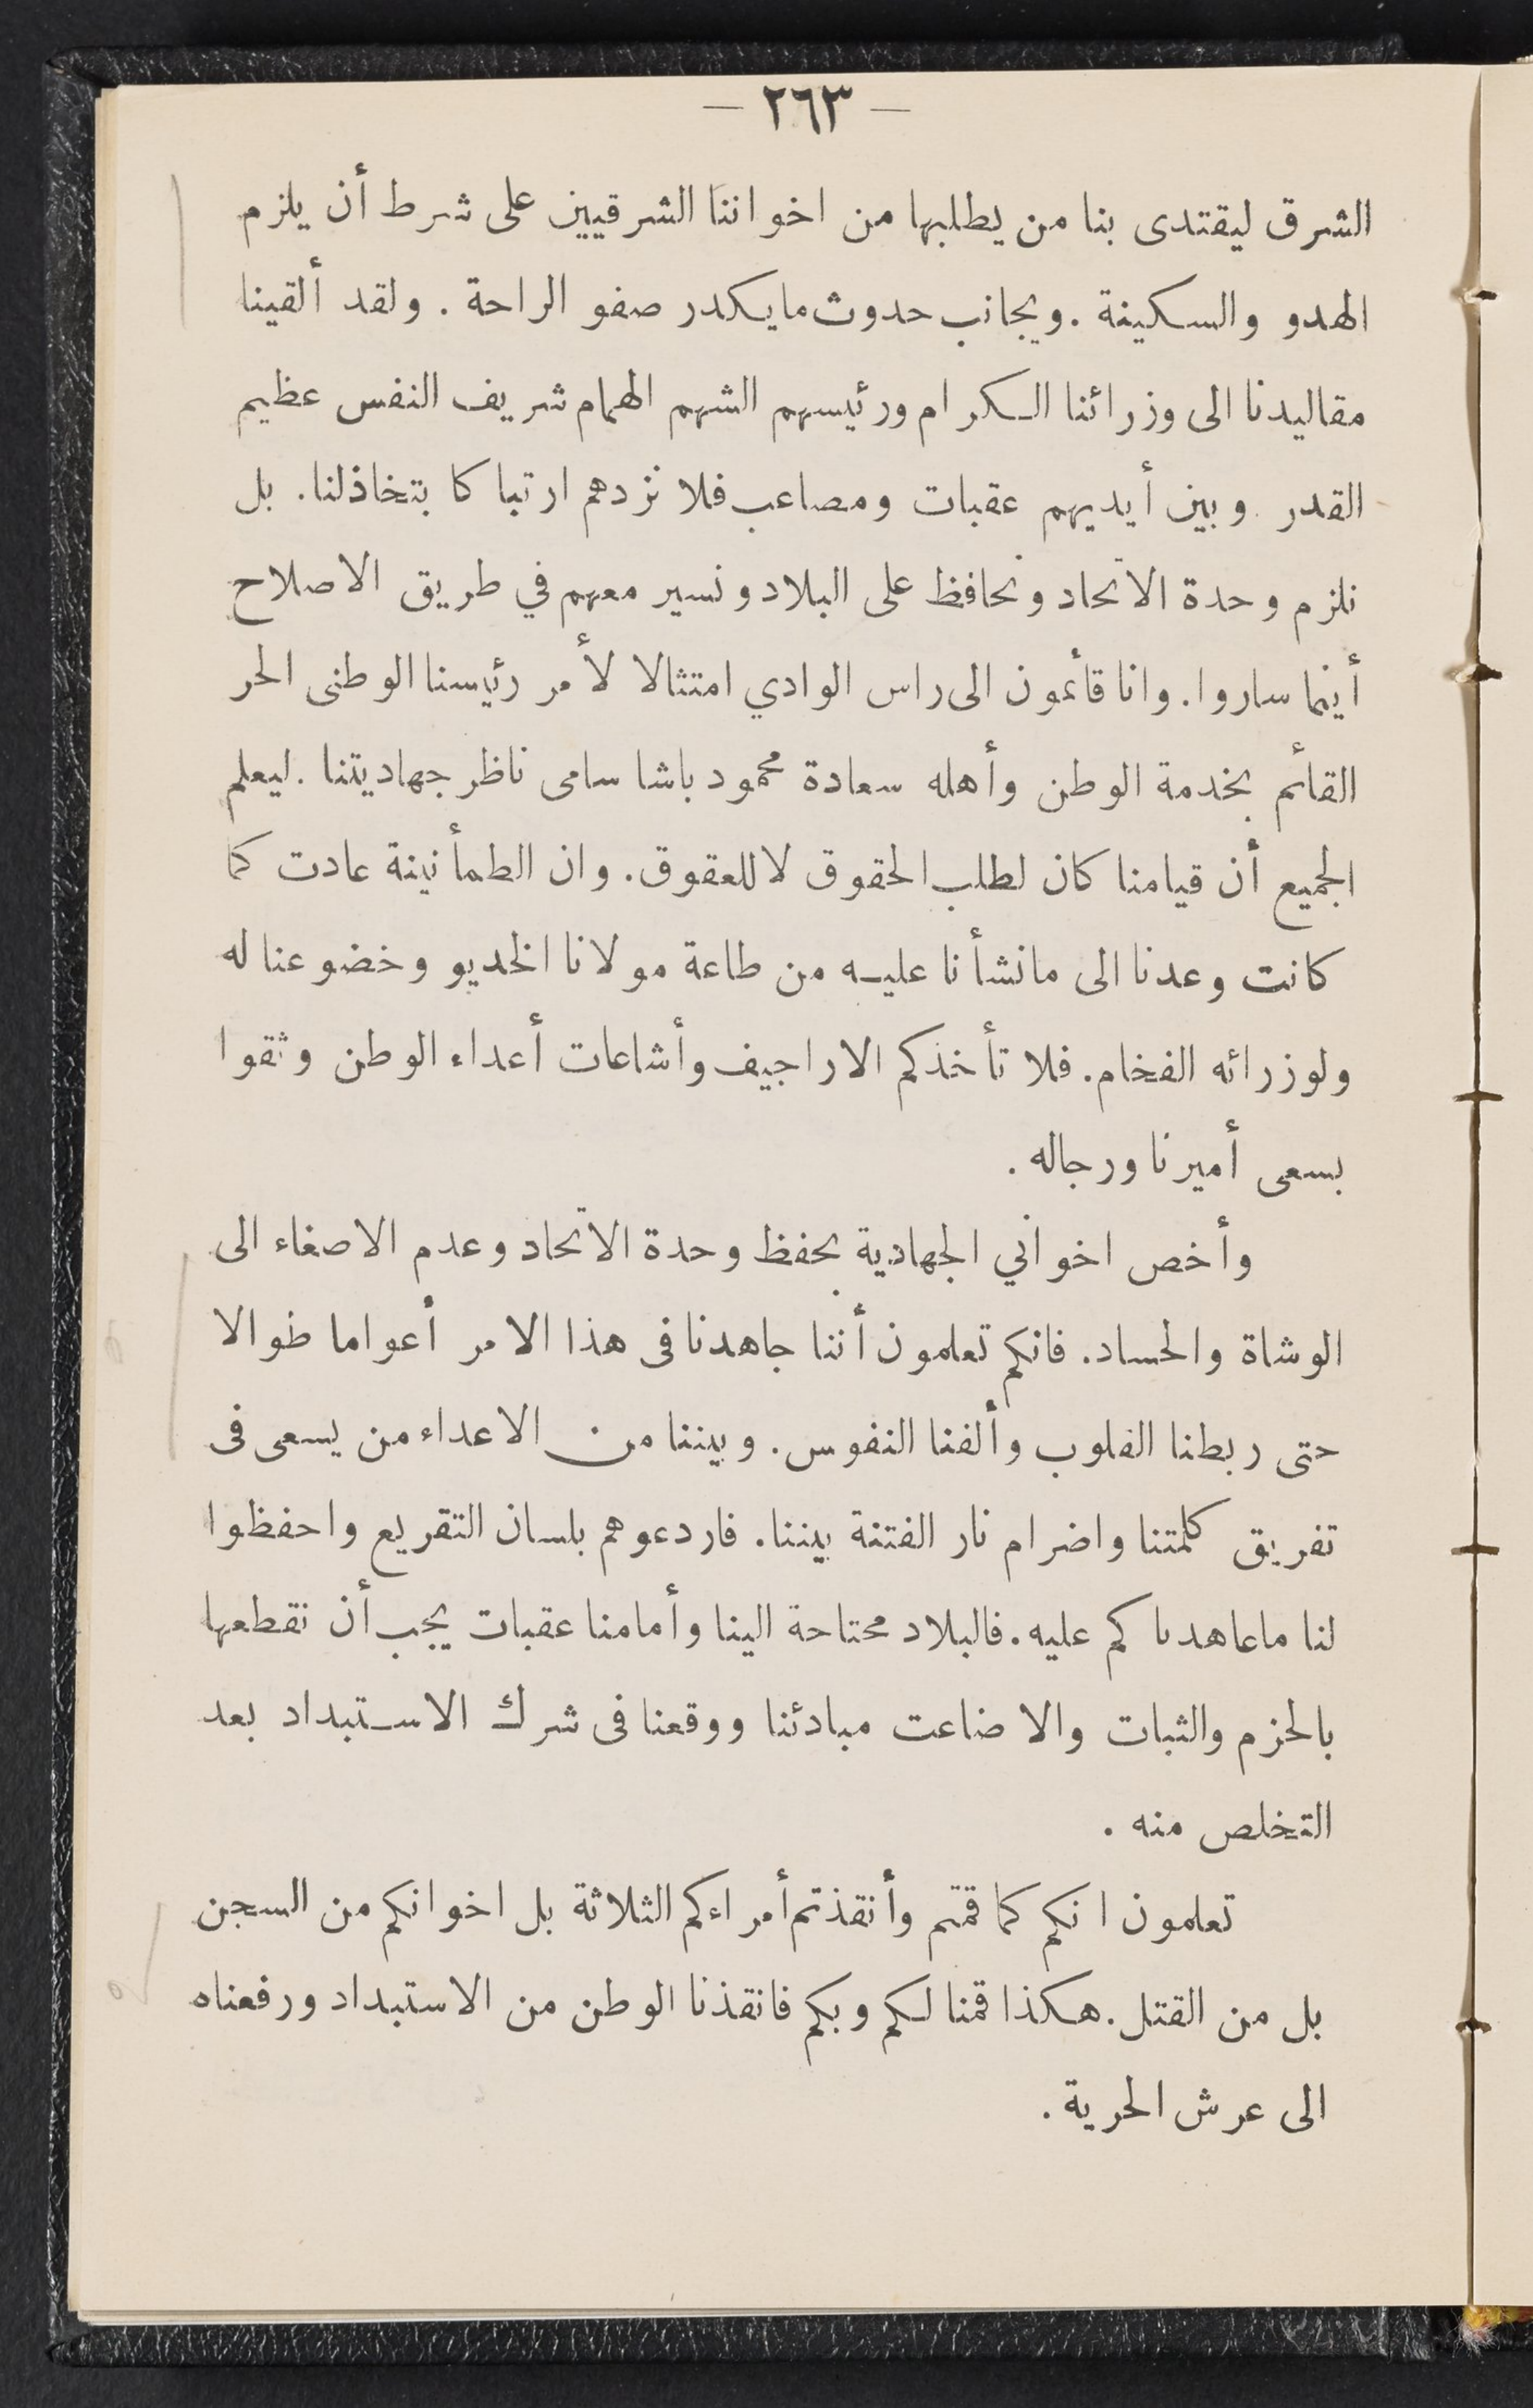 — ٢٦٣ —
الشرق ليقتدى بنا من يطلبها من اخواننا الشرقيين على شرط أن يلزم
الهدو والسكينة . ويجانب حدوث مايكدر صفو الراحة . ولقد ألقينا
مقاليدنا الى وزرائنا الكرام ورئيسهم الشهم الهمام شريف النفس عظيم
القدر وبين أيديهم عقبات ومصاعب فلا نزدهم ارتباكا بتخاذلنا . بل
نلزم وحدة الاتحاد ونحافظ على البلاد ونسير معهم في طريق الاصلاح
أينما ساروا . وانا قائمون الى راس الوادي امتثالا لأمر رئيسنا الوطنى الحر
القائم بخدمة الوطن وأهله سعادة محمود باشا سامى ناظر جهاديتنا . ليعلم
الجميع أن قيامنا كان لطلب الحقوق لا للعقوق . وان الطمأنينة عادت كما
كانت وعدنا الى مانشأنا عليه من طاعة مولانا الخديو وخضوعنا له
ولوزرائه الفخام . فلا تأخذكم الاراجيف وأشاعات أعداء الوطن وثقوا
بسعى أميرنا ورجاله .
وأخص اخواني الجهادية بحفظ وحدة الاتحاد وعدم الاصغاء الى
الوشاة والحساد . فانكم تعلمون أننا جاهدنا فى هذا الامر أعواما طوالا
حتى ربطنا القلوب وألفنا النفوس . وبيننا من الاعداء من يسعى فى
تفريق كلمتنا واضرام نار الفتنة بيننا . فاردعوهم بلسان التقريع واحفظوا
لنا ماعاهدناكم عليه . فالبلاد محتاحة الينا وأمامنا عقبات يجب أن نقطعها
بالحزم والثبات والا ضاعت مبادئنا ووقعنا فى شرك الاستبداد بعد
التخلص منه .
تعلمون انكم كما قمتم وأنقذتم أمراءكم الثلاثة بل اخوانكم من السجن
بل من القتل . هكذا قمنا لكم وبكم فانقذنا الوطن من الاستبداد ورفعناه
الى عرش الحرية .